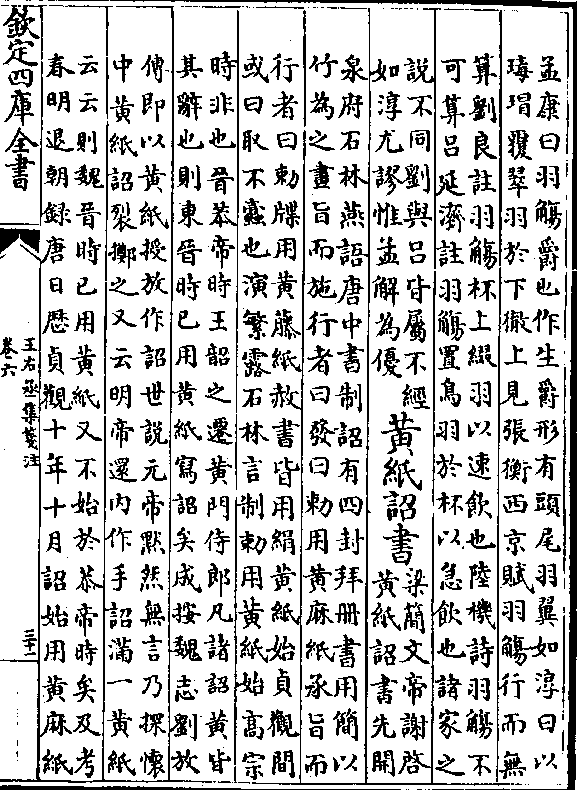 孟康曰羽觴爵也作生爵形有頭尾羽翼如淳曰以
瑇瑁覆翠羽於下徹上見張衡西京賦羽觴行而無
算劉良註羽觴杯上綴羽以速飲也陸機詩羽觴不
可算呂延濟註羽觴置鳥羽於杯以急飲也諸家之
說不同劉與呂皆屬不經
如淳尤謬惟孟解為優
黃紙詔書
梁簡文帝謝啓
黃紙詔書先開
泉府石林燕語唐中書制詔有四封拜册書用簡以
竹為之畫旨而施行者曰發曰勅用黃麻紙承旨而
行者曰勅牒用黃藤紙赦書皆用絹黃紙始貞觀間
或曰取不蠹也演繁露石林言制勅用黃紙始高宗
時非也晉恭帝時王韶之遷黃門侍郎凡諸詔黃皆
其辭也則東晉時已用黃紙寫詔矣成按魏志劉放
傳即以黃紙授放作詔世說元帝默然無言乃探懷
中黃紙詔裂擲之又云明帝還内作手詔滿一黃紙
云云則魏晉時已用黃紙又不始於恭帝時矣及考
春明退朝録唐日厯貞觀十年十月詔始用黃麻紙
欽定四庫全書
王右丞集箋注
卷六
三十一